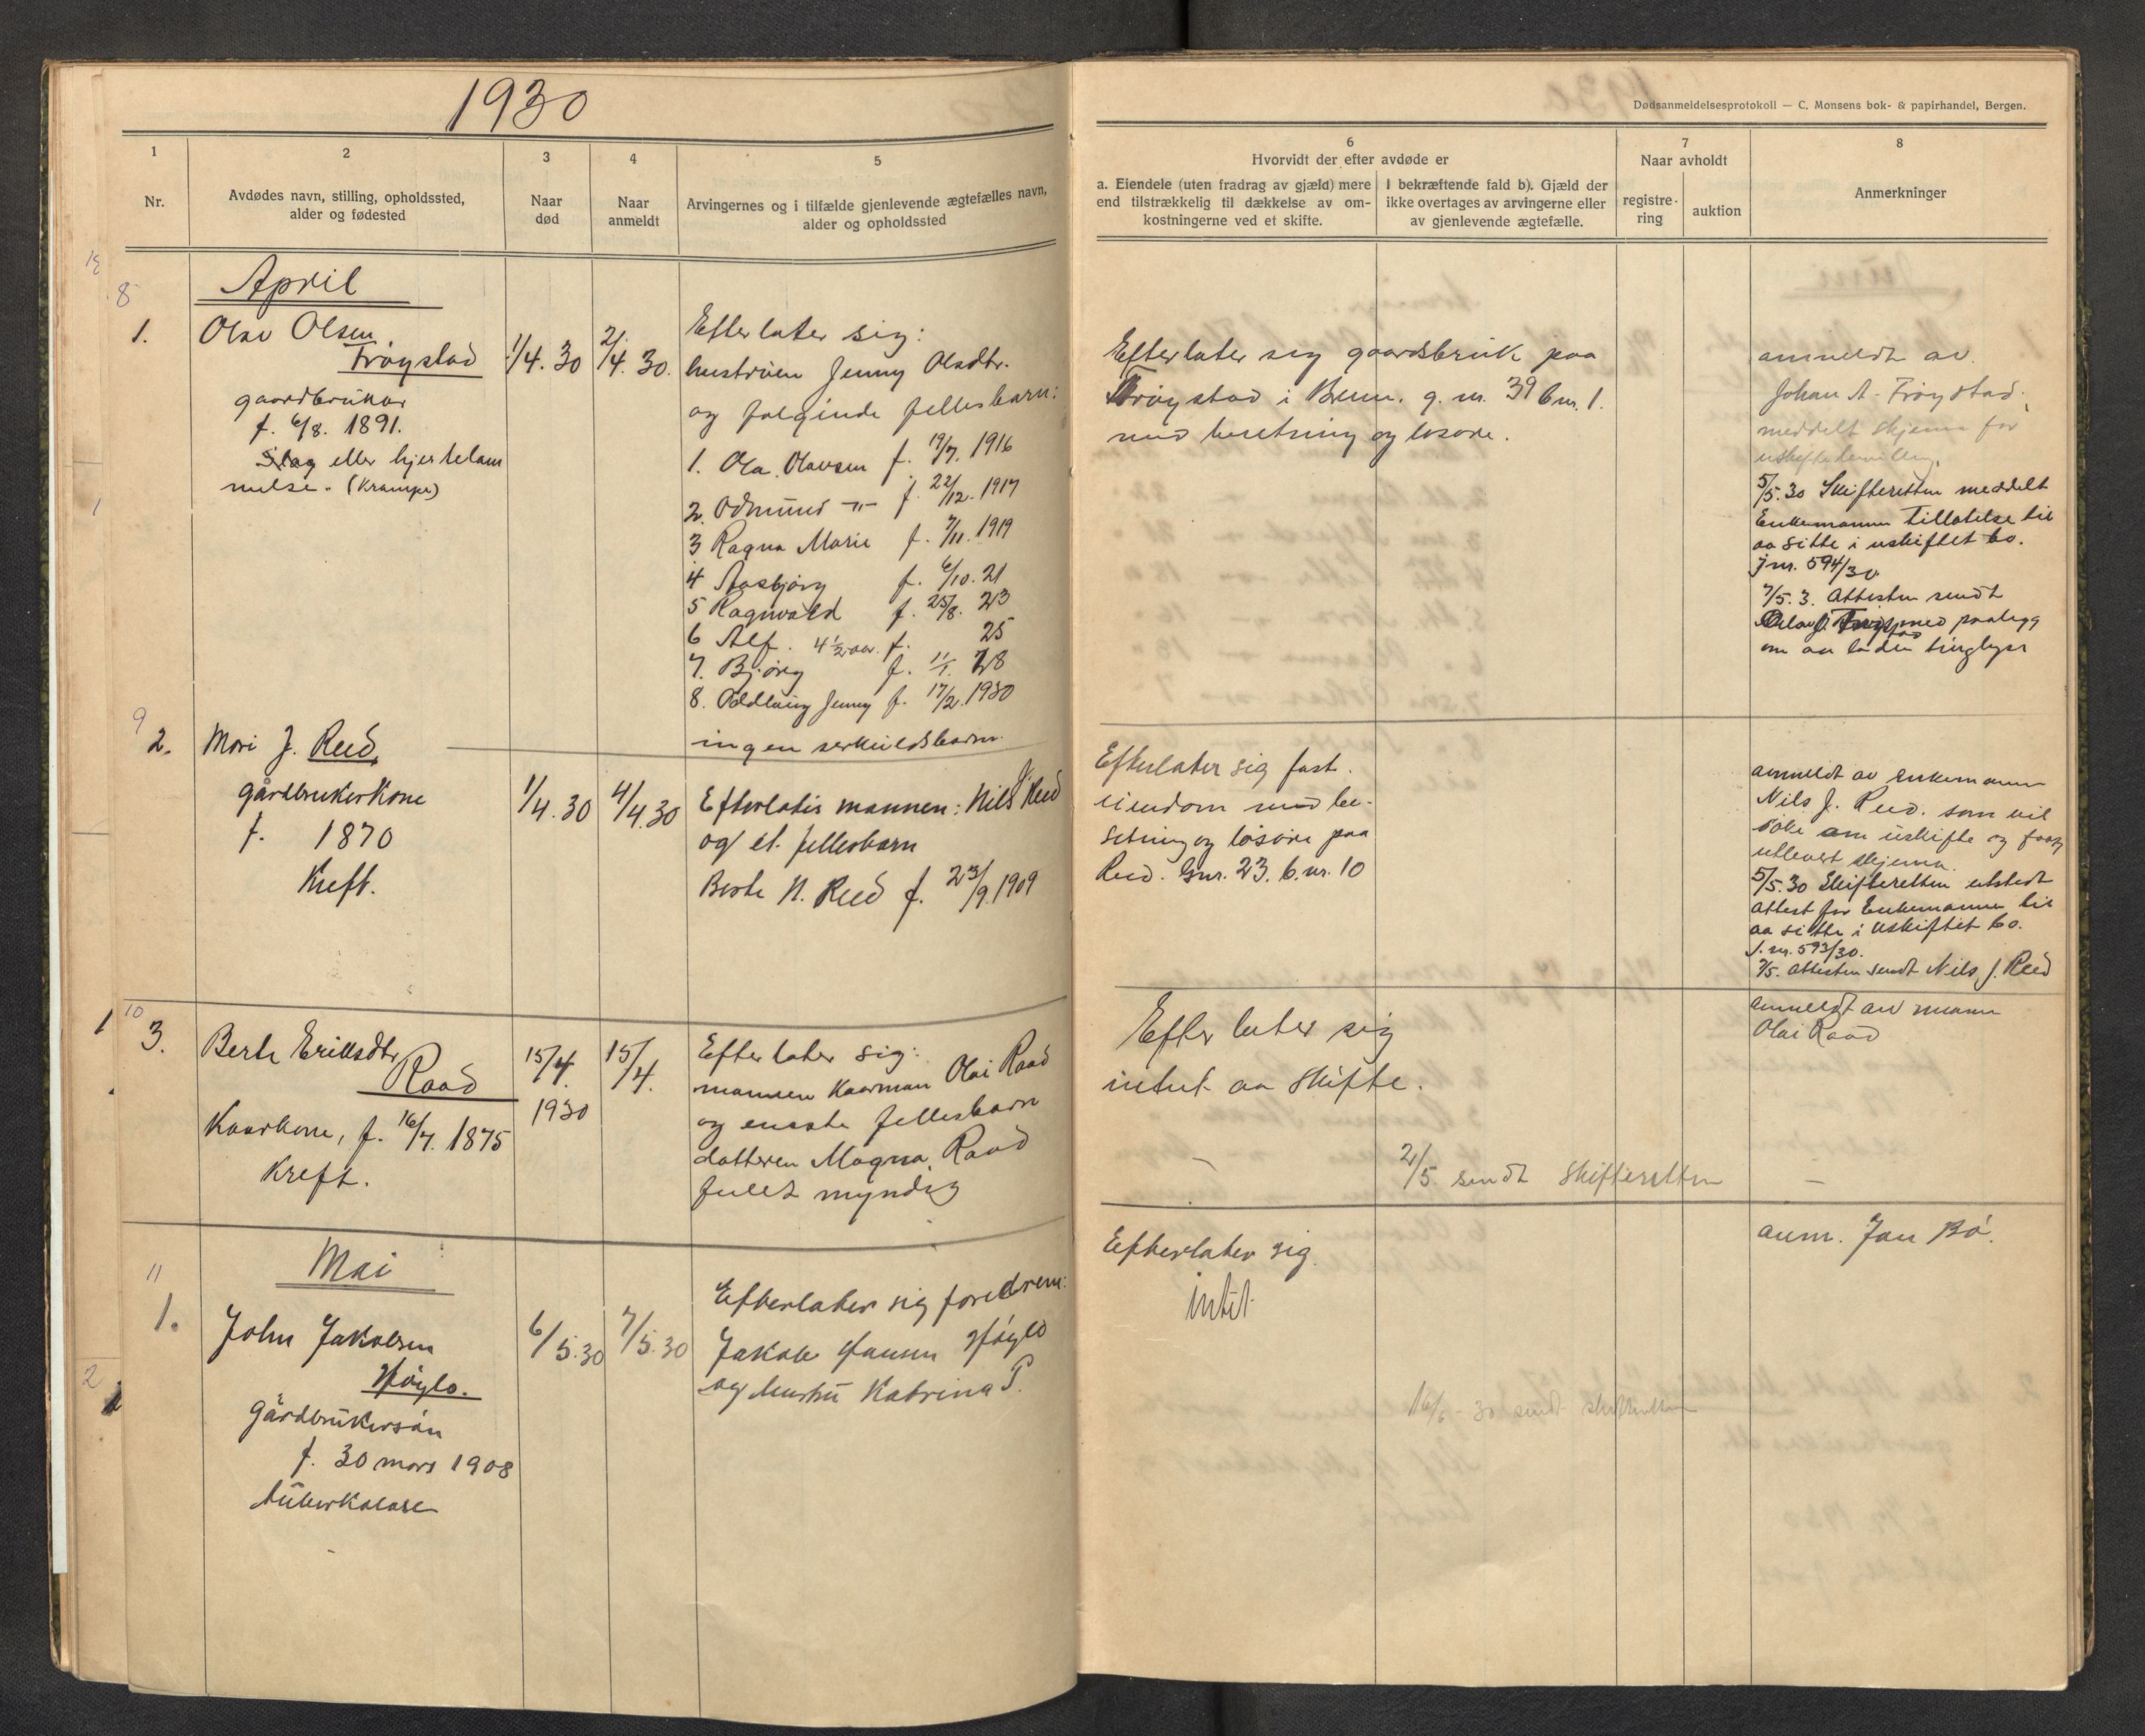 1930
1
2
3
4
5
Nr.
Avdødes navn, stilling, opholdssted,
alder og fødested
Naar
død
Naar
anmeldt
Arvingernes og i tilfælde gjenlevende ægtefælles navn,
alder og opholdssted
8
April
1.
Olav Olsen
Frøystad
gaardbruker
f. 6/8. 1891.
Slag eller hjertelam
melse. (Krampe)
1/4. 30
2/4. 30.
Efterlater sig:
hustruen Jenny Olsdtr.
og følginde fellesbarn:
1. Ola Olavsen f. 19/7. 1916
2. Odmund -"- f. 22/12. 1917
3 Ragna Marie f. 7/11. 1919
4 Aasbjørg f. 6/10. 21
5 Ragnvald f. 25/8. 23
6 Alf. 4 1/2 aar f. 25
7. Bjørg f. 11/1. 28
8. Oddlaug Jenny f. 17/2. 1930
ingen serkuldsbarn.
9
2.
Mari J. Reed,
gårdbrukerkone
f. 1870
Kreft.
1/4. 30
4/4. 30
Efterlatis mannen: Nils J. Reed
og et fellesbarn
Berte N. Reed f. 23/9. 1909
10
3.
Berte Eriksdtr
Raad
Kaarkone, f. 16/7. 1875
Kreft.
15/4.
1930
15/4.
Efterlater sig:
mannen Kaarmann Olai Raad
og eneste fellesbarn
datteren Magna Raad
fullt myndig
11
Mai
1.
John Jakobsen
Høylo.
gårdbrukersøn
f. 30 mars 1908
tuberkolose
6/5. 30
7/5. 30
Efterlater sig foreldrene:
Jakob Hansen Høylo
og hustru Katrina P.
Dødsanmeldelsesprotokoll — C. Monsens bok- & papirhandel, Bergen.
6
Hvorvidt der efter avdøde er
a. Eiendele (uten fradrag av gjæld) mere
end tilstrækkelig til dækkelse av om-
kostningerne ved et skifte.
I bekræftende fald b). Gjæld der
ikke overtages av arvingerne eller
av gjenlevende ægtefælle.
7
Naar avholdt
registre-
ring
auktion
8
Anmerkninger
Efterlater sig gaardsbruk paa
Frøystad i g. nr. 39 b nr. 1.
med besetning og løsøre.
anmeldt av
Johan A. Frøystad.
meddelt skjema for
uskiftebevilling.
5/5. 30 Skifteretten meddelt
Enkemannen tillatelse til
aa sitte i uskiftet bo.
j nr. 594/30.
7/5. 3. Attesten sendt
med paalegg
om aa la den tinglyse
Efterlater sig fast
eiendom med be-
setning og løsøre paa
Reed. Gnr. 23. b. nr. 10
anmeldt av enkemann
Nils J. Reed. som vil
søke om uskifte og faar
utlevert skjema.
5/5. 30 Skifteretten utstedt
attest for Enkemannen til
aa sitte i uskiftet bo.
J. nr. 593/30.
7/5. Attesten sendt Nils J. Reed
Efterlater sig
intet aa skifte.
2/5. sendt skifteretten
anmeldt av mann
Olai Raad
Efterlater sig
intet
16/6 - 30 sendt skifteretten
anm. Jan Bø.